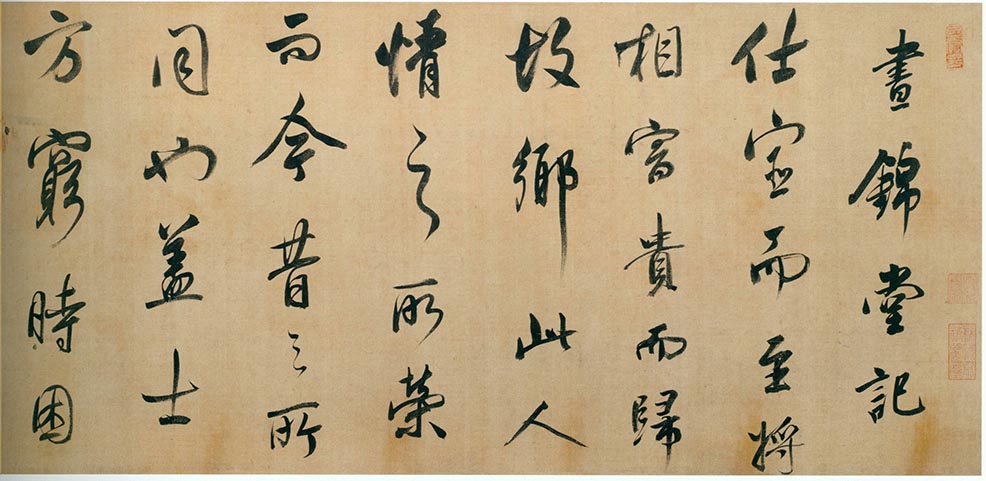 晝錦堂記
仕宦而至將
相富貴而歸
故鄉此人
情之所榮
而今昔之所
同也盖士
方窮時困